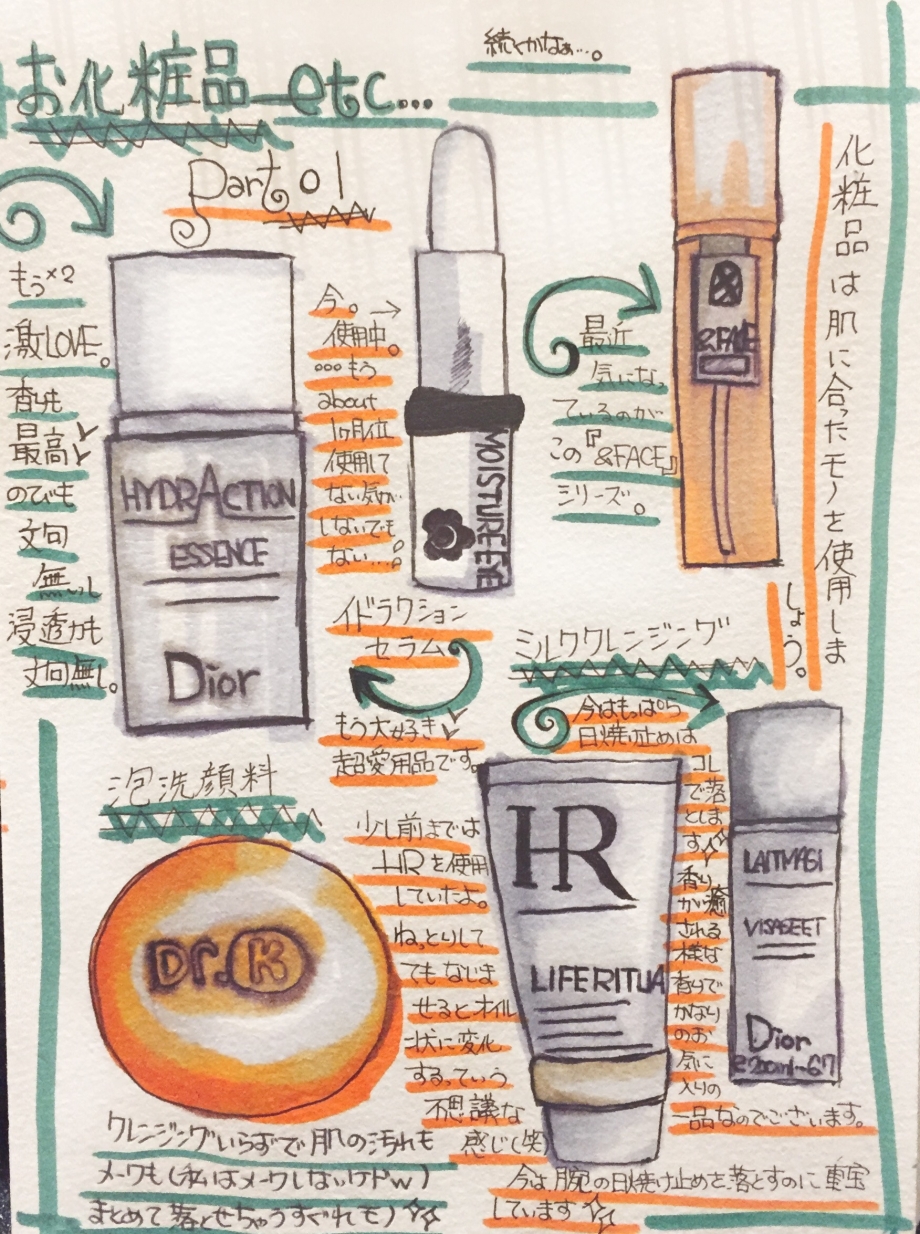 続くかなぁ…。
お化粧品 etc…
Part 01
化粧品は肌に合ったモノを使用しま
しょう。
もう×2
激LOVE。
香りも
最高
のびも
文句
無いし
浸透力も
文句無し。
HYDRACTION
ESSENCE
Dior
今。→
使用中。
…もう
about
1ヶ月位
使用して
ない気が
しないでも
ない…。
MOISTURE EYE
最近
気になっ
ているのが
この『&FACE』
シリーズ。
&FACE
イドラクション
セラム
もう大好き
超愛用品です。
ミルククレンジング
今はもっぱら
日焼け止めは
コレ
で落
としま
す
香り
が癒
される
様な
香りで
かなり
のお
気に
入りの
一品なのでございます。
LAITMAGI
VISAGEET
Dior
泡洗顔料
Dr.K
クレンジングいらずで肌の汚れも
メークも(私はメークしないけドw)
まとめて落とせちゃうすぐれもノ
少し前までは
HRを使用
していたよ。
ねっとりして
てもなじま
せるとオイル
状に変化
するっていう
不思議な
感じ(笑)
HR
LIFERITUA
今は腕の日焼け止めを落とすのに重宝
しています